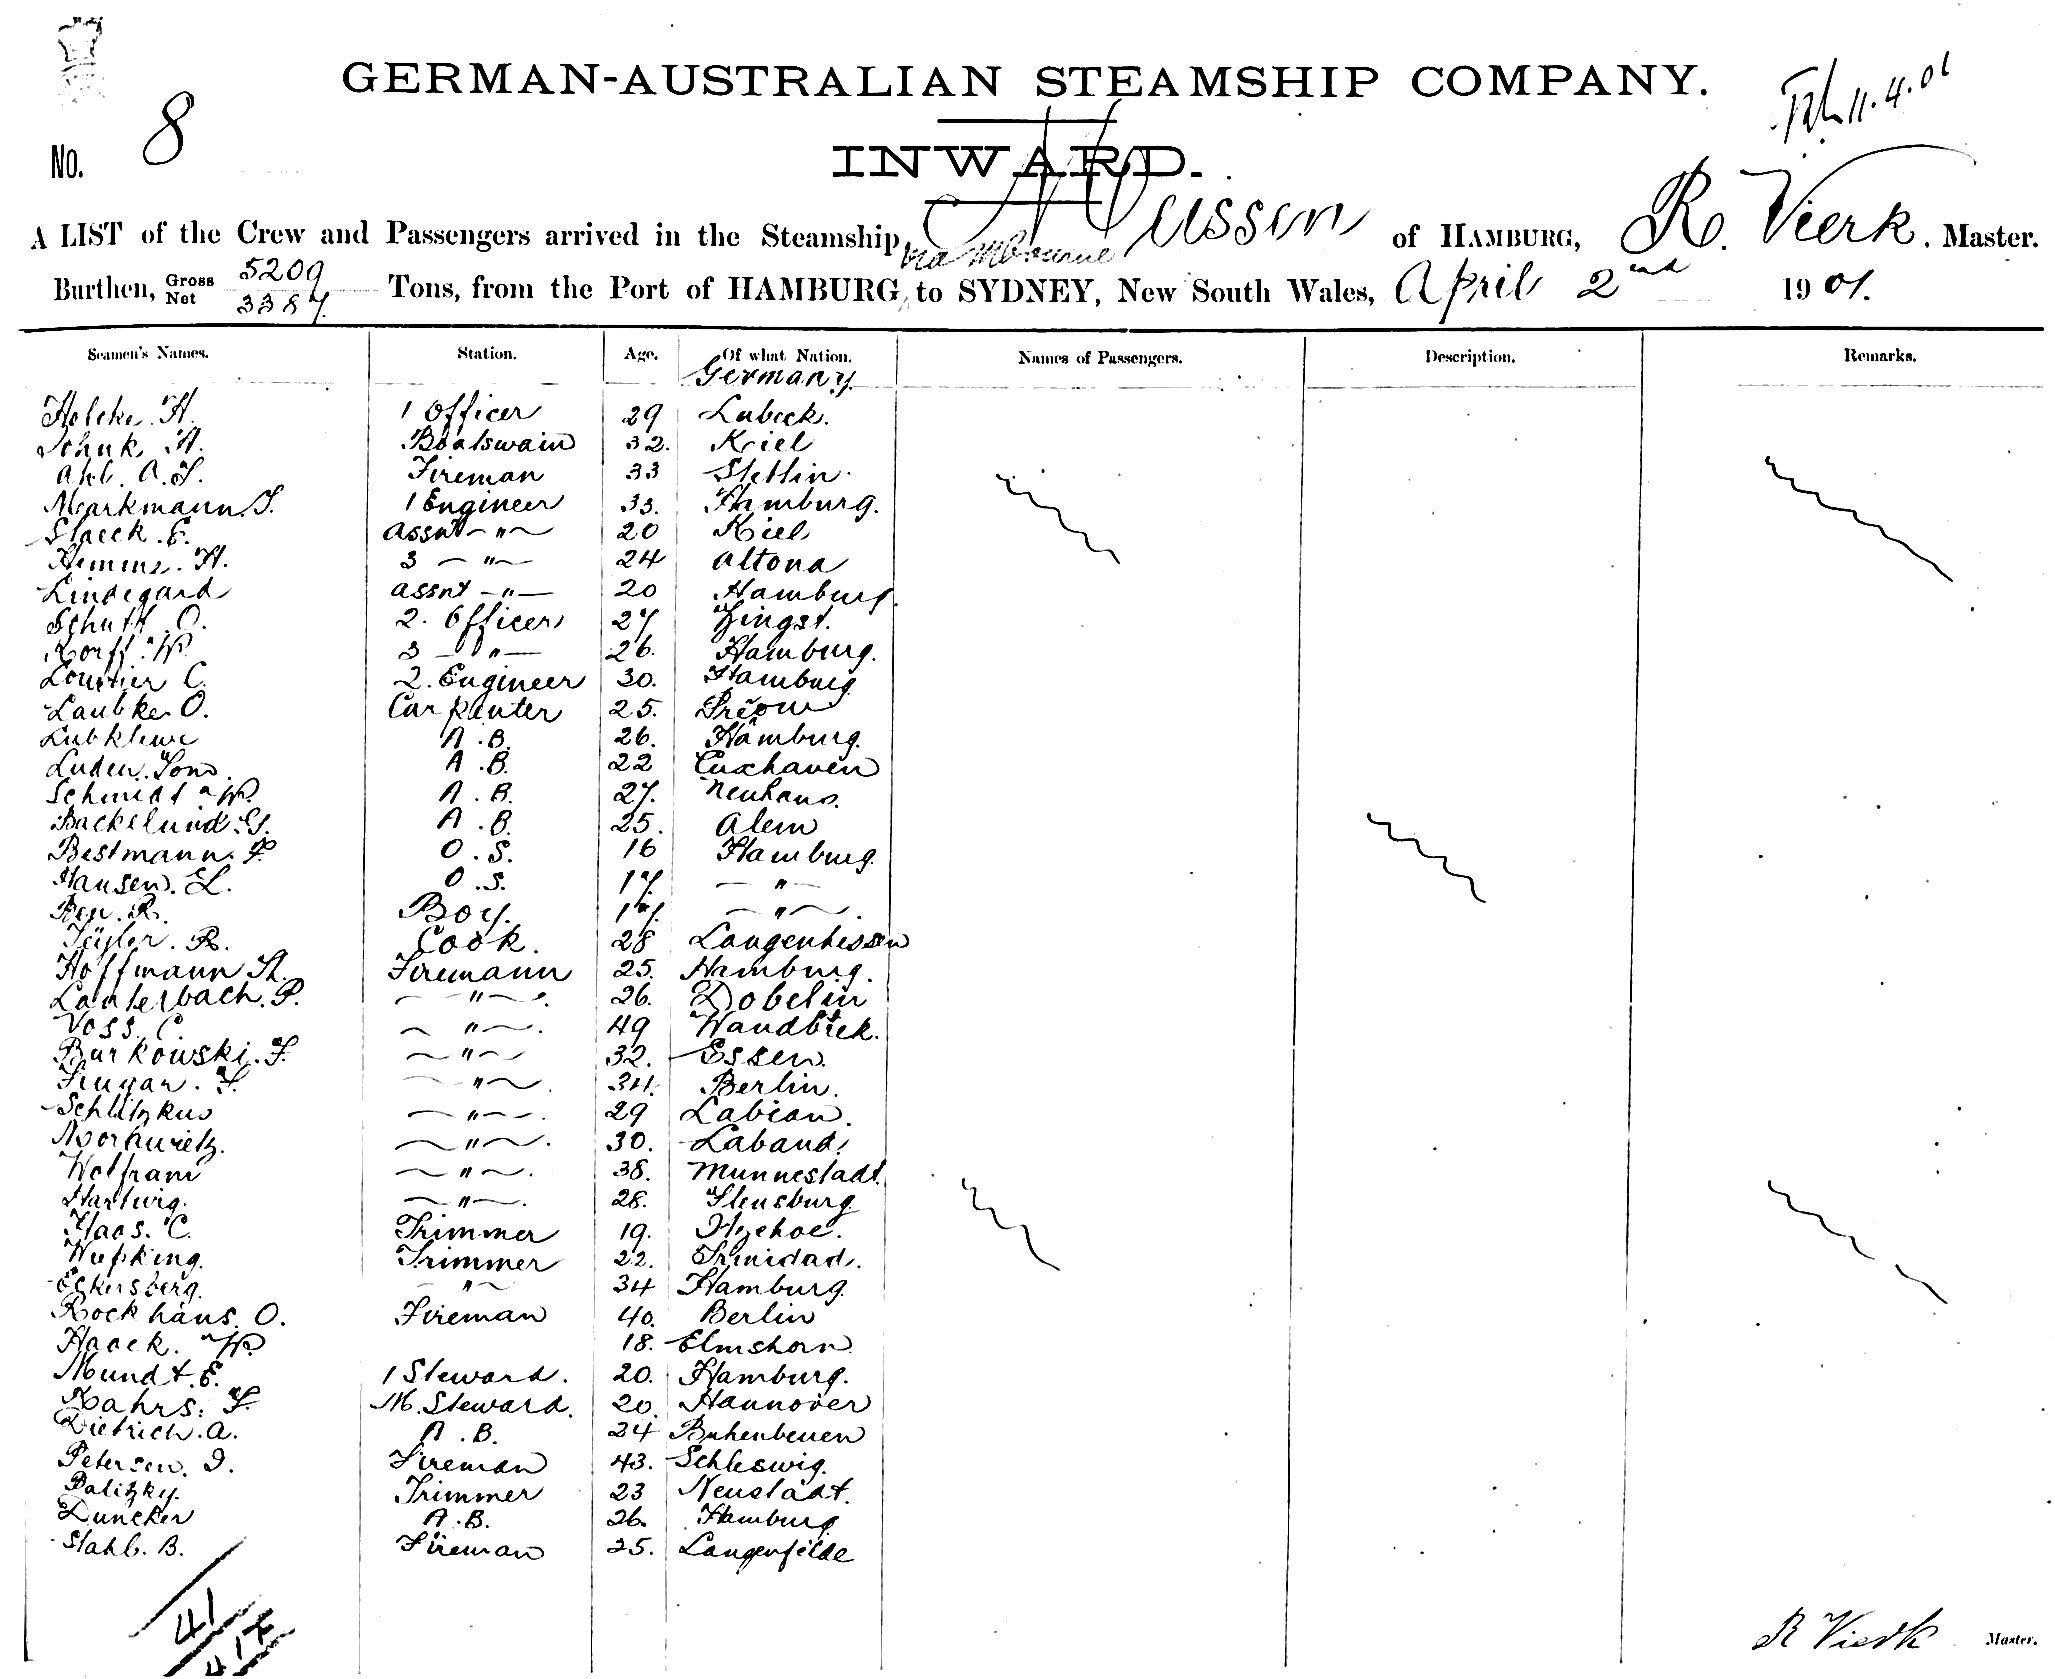 GERMAN-AUSTRALIAN STEAMSHIP COMPANY.
11.4.01
No. 8
INWARD.
A LIST of the Crew and Passengers arrived in the Steamship, of HAMBURG, R. Vierk. Master.
via Mbourne
Burthen, Gross 5209 Net 3387 Tons, from the Port of HAMBURG, to SYDNEY, New South Wales, April 2nd 1901.
Seamen's Names. Station. Age. Of what Nation. Names of Passengers. Description. Remarks.
Germany
H. 1 Officer 29 Lubeck.
Schuk H. Boatswain 32. Kiel
Ahl. A. F. Fireman 33 Stettin.
Markmann. F. 1 Engineer 33. Hamburg.
Staeck. E. Assnt - " - 20 Kiel
H. 3 - " - 24 Altona
Lindegard Assnt - " - 20 Hamburg.
Schutt. O. 2. Officer 27 Zingst.
Korff. W. 3 - " - 26. Hamburg.
C. 2. Engineer 30. Hamburg
Laubke O. Carpenter 25.
A. B. 26. Hamburg.
Luden. A. B. 22 Cuxhaven
Schmidt W. A. B. 27. Neuhaus.
Backelund. G. A. B. 25. Alem
Bestmann. P. O. S. 16 Hamburg.
Hansen. L. O. S. 17. - " -
R. Boy. 17. - " -
R. Cook. 28 Langenhessen
Hoffmann Th. Firemann 25. Hamburg.
Lauterbach. P. - " - 26. Dobelin
Voss. C. - " - 49 Wandbek.
Burkowski. F. - " - 32. Essen.
F. - " - 34. Berlin.
Schlitzkus - " - 29 Labian.
Morawietz. - " - 30. Laband.
Wolfram - " - 38. Munnestadt.
Hartwig. - " - 28. Flensburg
Haas. C. Trimmer 19. Itzehoe.
Wepking. Trimmer 22. Trinidad.
Eckersberg. - " - 34 Hamburg.
Rockhaus. O. Fireman 40. Berlin
Haack. W. 18. Elmshorn
Mundt. E. 1 Steward. 20. Hamburg.
Kahrs. F. M. Steward. 20. Hannover
Dietrich. A. A. B. 24
Petersen. J. Fireman 43. Schleswig.
Palitzky. Trimmer 23 Neustadt.
Duncker A. B. 26. Hamburg
Stahl. B. Fireman 25. Langenfelde
41
R Vierk Master.